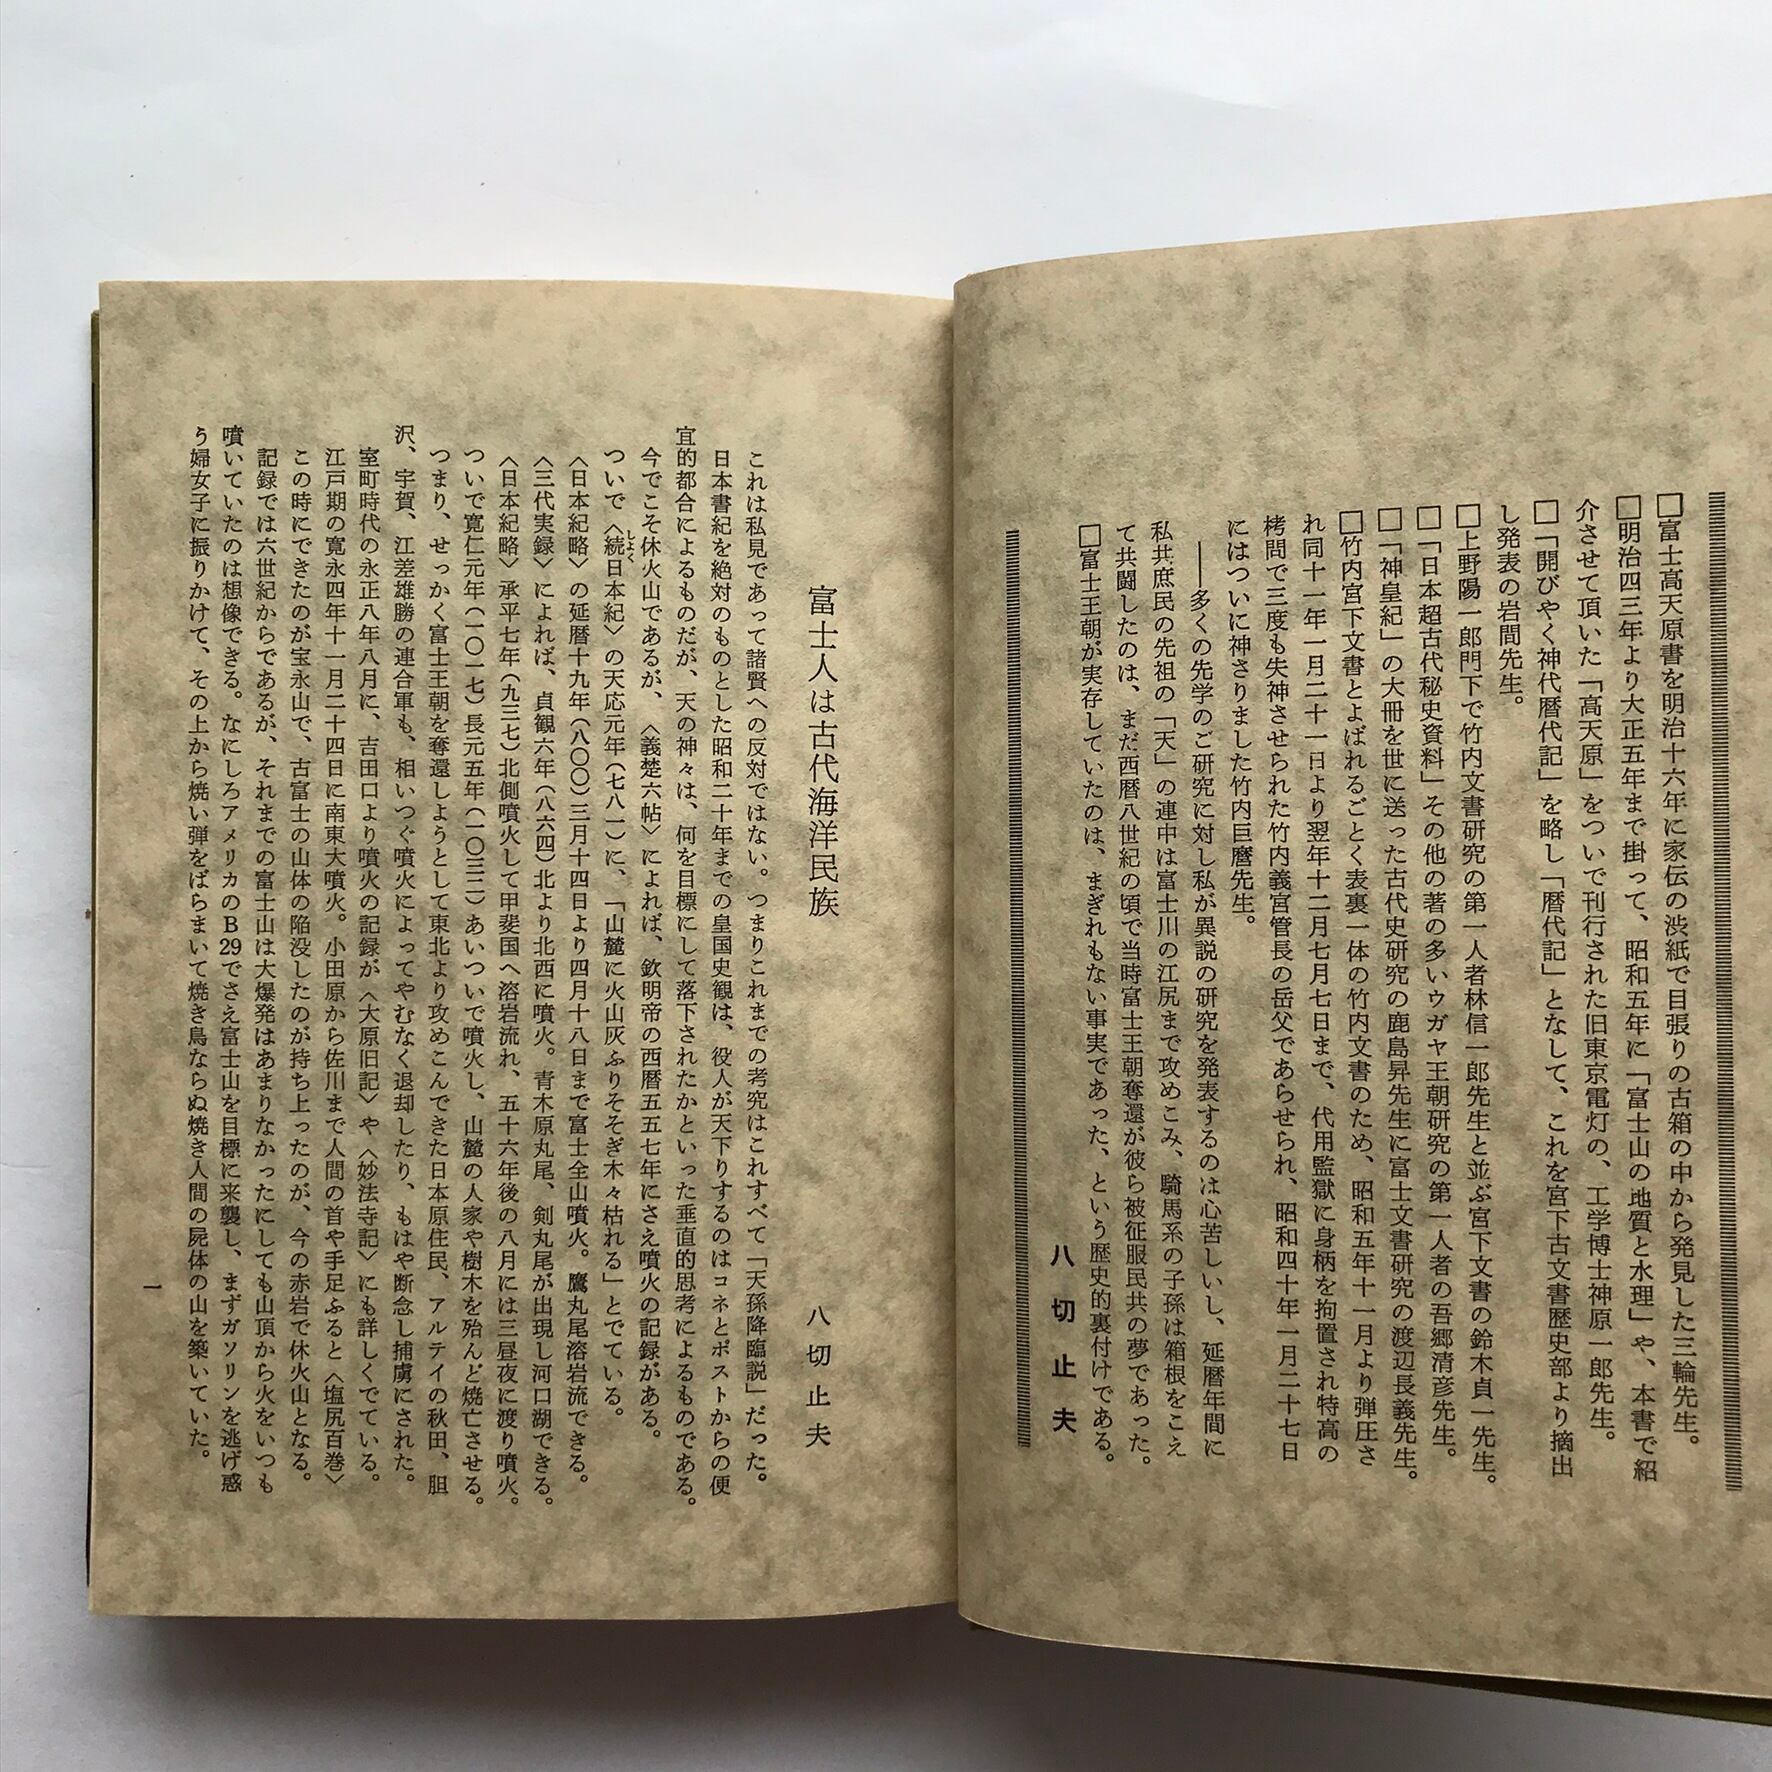 □富士高天原書を明治十六年に家伝の渋紙で目張りの古箱の中から発見した三輪先生。
□明治四三年より大正五年まで掛って、昭和五年に「富士山の地質と水理」や、本書で紹
介させて頂いた「高天原」をついで刊行された旧東京電灯の、工学博士神原一郎先生。
□「開びやく神代暦代記」を略し「暦代記」となして、これを宮下古文書歴史部より摘出
し発表の岩間先生。
□上野陽一郎門下で竹内文書研究の第一人者林信一郎先生と並ぶ宮下文書の鈴木貞一先生。
□「日本超古代秘史資料」その他の著の多いウガヤ王朝研究の第一人者の吾郷清彦先生。
□「神皇紀」の大冊を世に送った古代史研究の鹿島昇先生に富士文書研究の渡辺長義先生。
□竹内宮下文書とよばれるごとく表裏一体の竹内文書のため、昭和五年十一月より弾圧さ
れ同十一年一月二十一日より翌年十二月七月七日まで、代用監獄に身柄を拘置され特高の
拷問で三度も失神させられた竹内義宮管長の岳父であらせられ、昭和四十年一月二十七日
にはついに神さりました竹内巨麿先生。
――多くの先学のご研究に対し私が異説の研究を発表するのは心苦しいし、延暦年間に
私共庶民の先祖の「天」の連中は富士川の江尻まで攻めこみ、騎馬系の子孫は箱根をこえ
て共闘したのは、まだ西暦八世紀の頃で当時富士王朝奪還が彼ら被征服民共の夢であった。
□富士王朝が実存していたのは、まぎれもない事実であった、という歴史的裏付けである。
八切止夫
富士人は古代海洋民族
八切止夫
これは私見であって諸賢への反対ではない。つまりこれまでの考究はこれすべて「天孫降臨説」だった。
日本書紀を絶対のものとした昭和二十年までの皇国史観は、役人が天下りするのはコネとポストからの便
宜的都合によるものだが、天の神々は、何を目標にして落下されたかといった垂直的思考によるものである。
今でこそ休火山であるが、〈義楚六帖〉によれば、欽明帝の西暦五五七年にさえ噴火の記録がある。
ついで〈続日本紀〉の天応元年(七八一)に、「山麓に火山灰ふりそそぎ木々枯れる」とでている。
しょく
〈日本紀略〉の延暦十九年(八〇〇)三月十四日より四月十八日まで富士全山噴火。鷹丸尾溶岩流できる。
〈三代実録〉によれば、貞観六年(八六四)北より北西に噴火。青木原丸尾、剣丸尾が出現し河口湖できる。
〈日本紀略〉承平七年(九三七)北側噴火して甲斐国へ溶岩流れ、五十六年後の八月には三昼夜に渡り噴火。
ついで寛仁元年(一〇一七)長元五年(一〇三二)あいついで噴火し、山麓の人家や樹木を殆んど焼亡させる。
つまり、せっかく富士王朝を奪還しようとして東北より攻めこんできた日本原住民、アルテイの秋田、胆
沢、宇賀、江差雄勝の連合軍も、相いつぐ噴火によってやむなく退却したり、もはや断念し捕虜にされた。
室町時代の永正八年八月に、吉田口より噴火の記録が〈大原旧記〉や〈妙法寺記〉にも詳しくでている。
江戸期の寛永四年十一月二十四日に南東大噴火。小田原から佐川まで人間の首や手足ふると〈塩尻百巻〉
この時にできたのが宝永山で、古富士の山体の陥没したのが持ち上ったのが、今の赤岩で休火山となる。
記録では六世紀からであるが、それまでの富士山は大爆発はあまりなかったにしても山頂から火をいつも
噴いていたのは想像できる。なにしろアメリカのB29でさえ富士山を目標に来襲し、まずガソリンを逃げ惑
う婦女子に振りかけて、その上から焼い弾をばらまいて焼き鳥ならぬ焼き人間の屍体の山を築いていた。
一